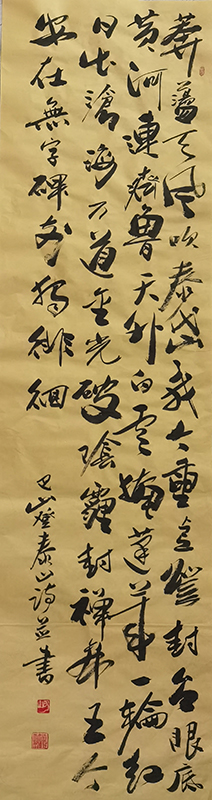 莽蕩天風吹泰岱我今重立登封台眼底
黃河連齊魯天外白雲掩蓬萊一輪紅
日出滄海万道金光破陰霾封禪帝王今
安在無字碑獨徘徊
山登泰山詩並書